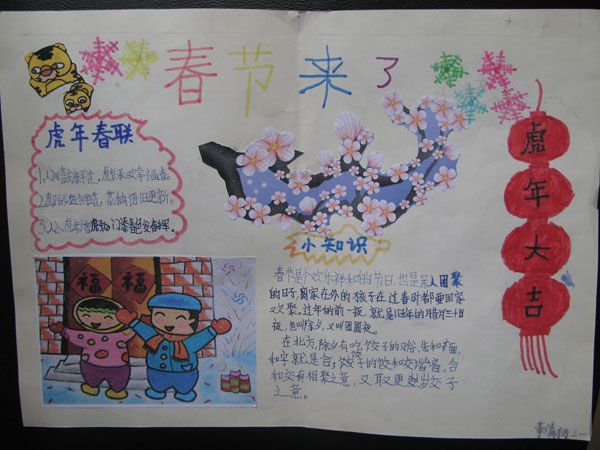 春节来了
虎年春联
小知识
春节是个欢乐祥和的节日，也是亲人团聚
的日子，离家在外的孩子在过春节时都要回家
欢聚。过年的前一夜，就是旧年的腊月三十日
夜，也叫除夕，又叫团圆夜。
在北方，除夕有吃饺子的习俗，先和面，
和字就是合；饺子的饺和交谐音，合
和交有相聚之意，又取更岁交子
之意。
福 福
虎年大吉